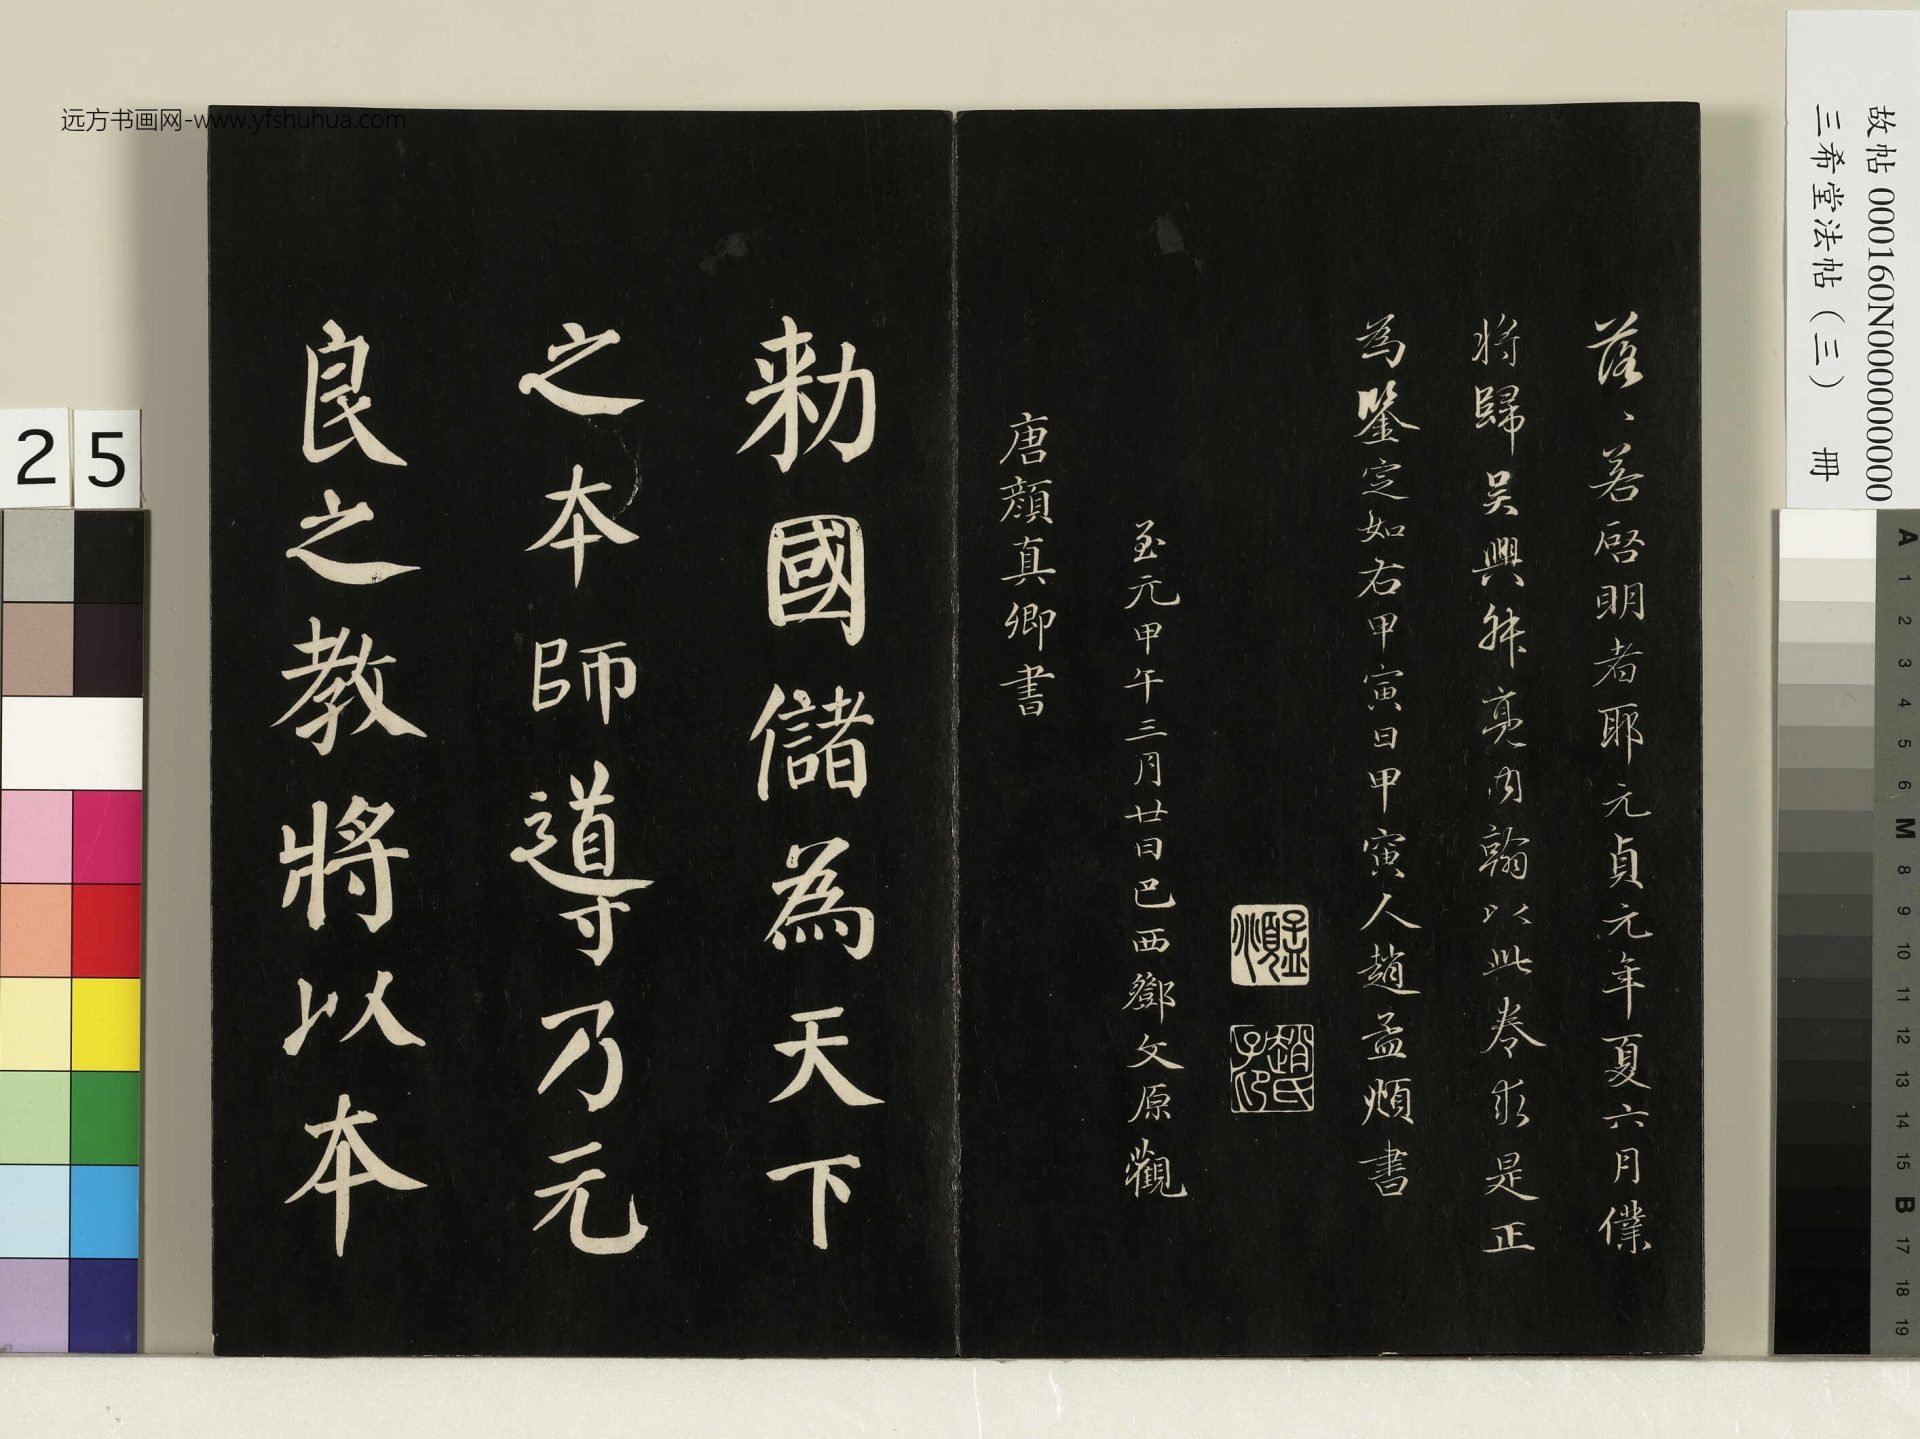 落〻若啓明者耶元貞元年夏六月僕
將歸吴興叔亮內翰以此卷求是正
為鑒定如右甲寅日甲寅人趙孟頫書
孟頫
趙氏子印
至元甲午三月廿日巴西鄧文原觀
唐顏真卿書
勑國儲為天下
之本師導乃元
良之教將以本
故帖 000160N000000000
三希堂法帖（三） 冊
远方书画网-www.yfshuhua.com
25
A 1 2 3 4 5 6 M 8 9 10 11 12 13 14 15 B 17 18 19